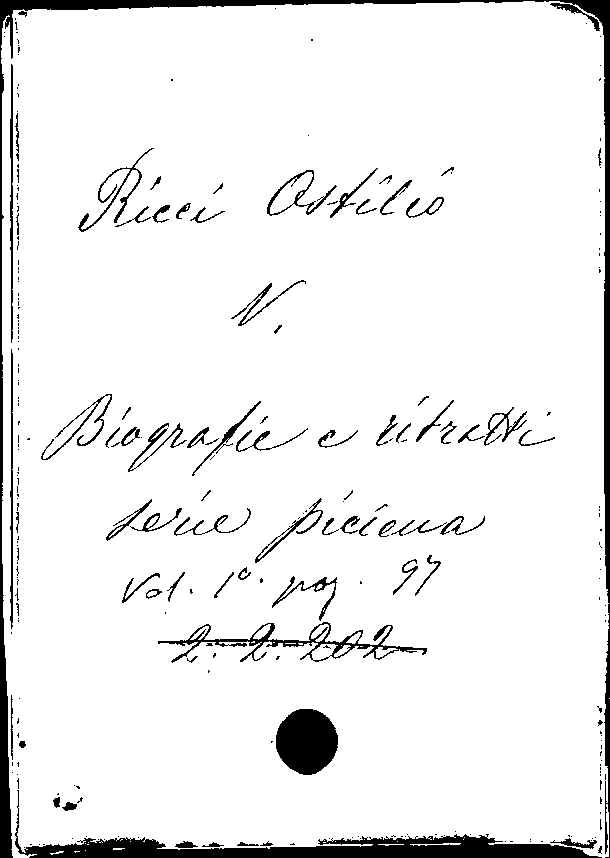 Ricci Ostilio
V.
Biografie e ritratti
serie piciena
Vol. 1º. pag. 97
2. 2. 202